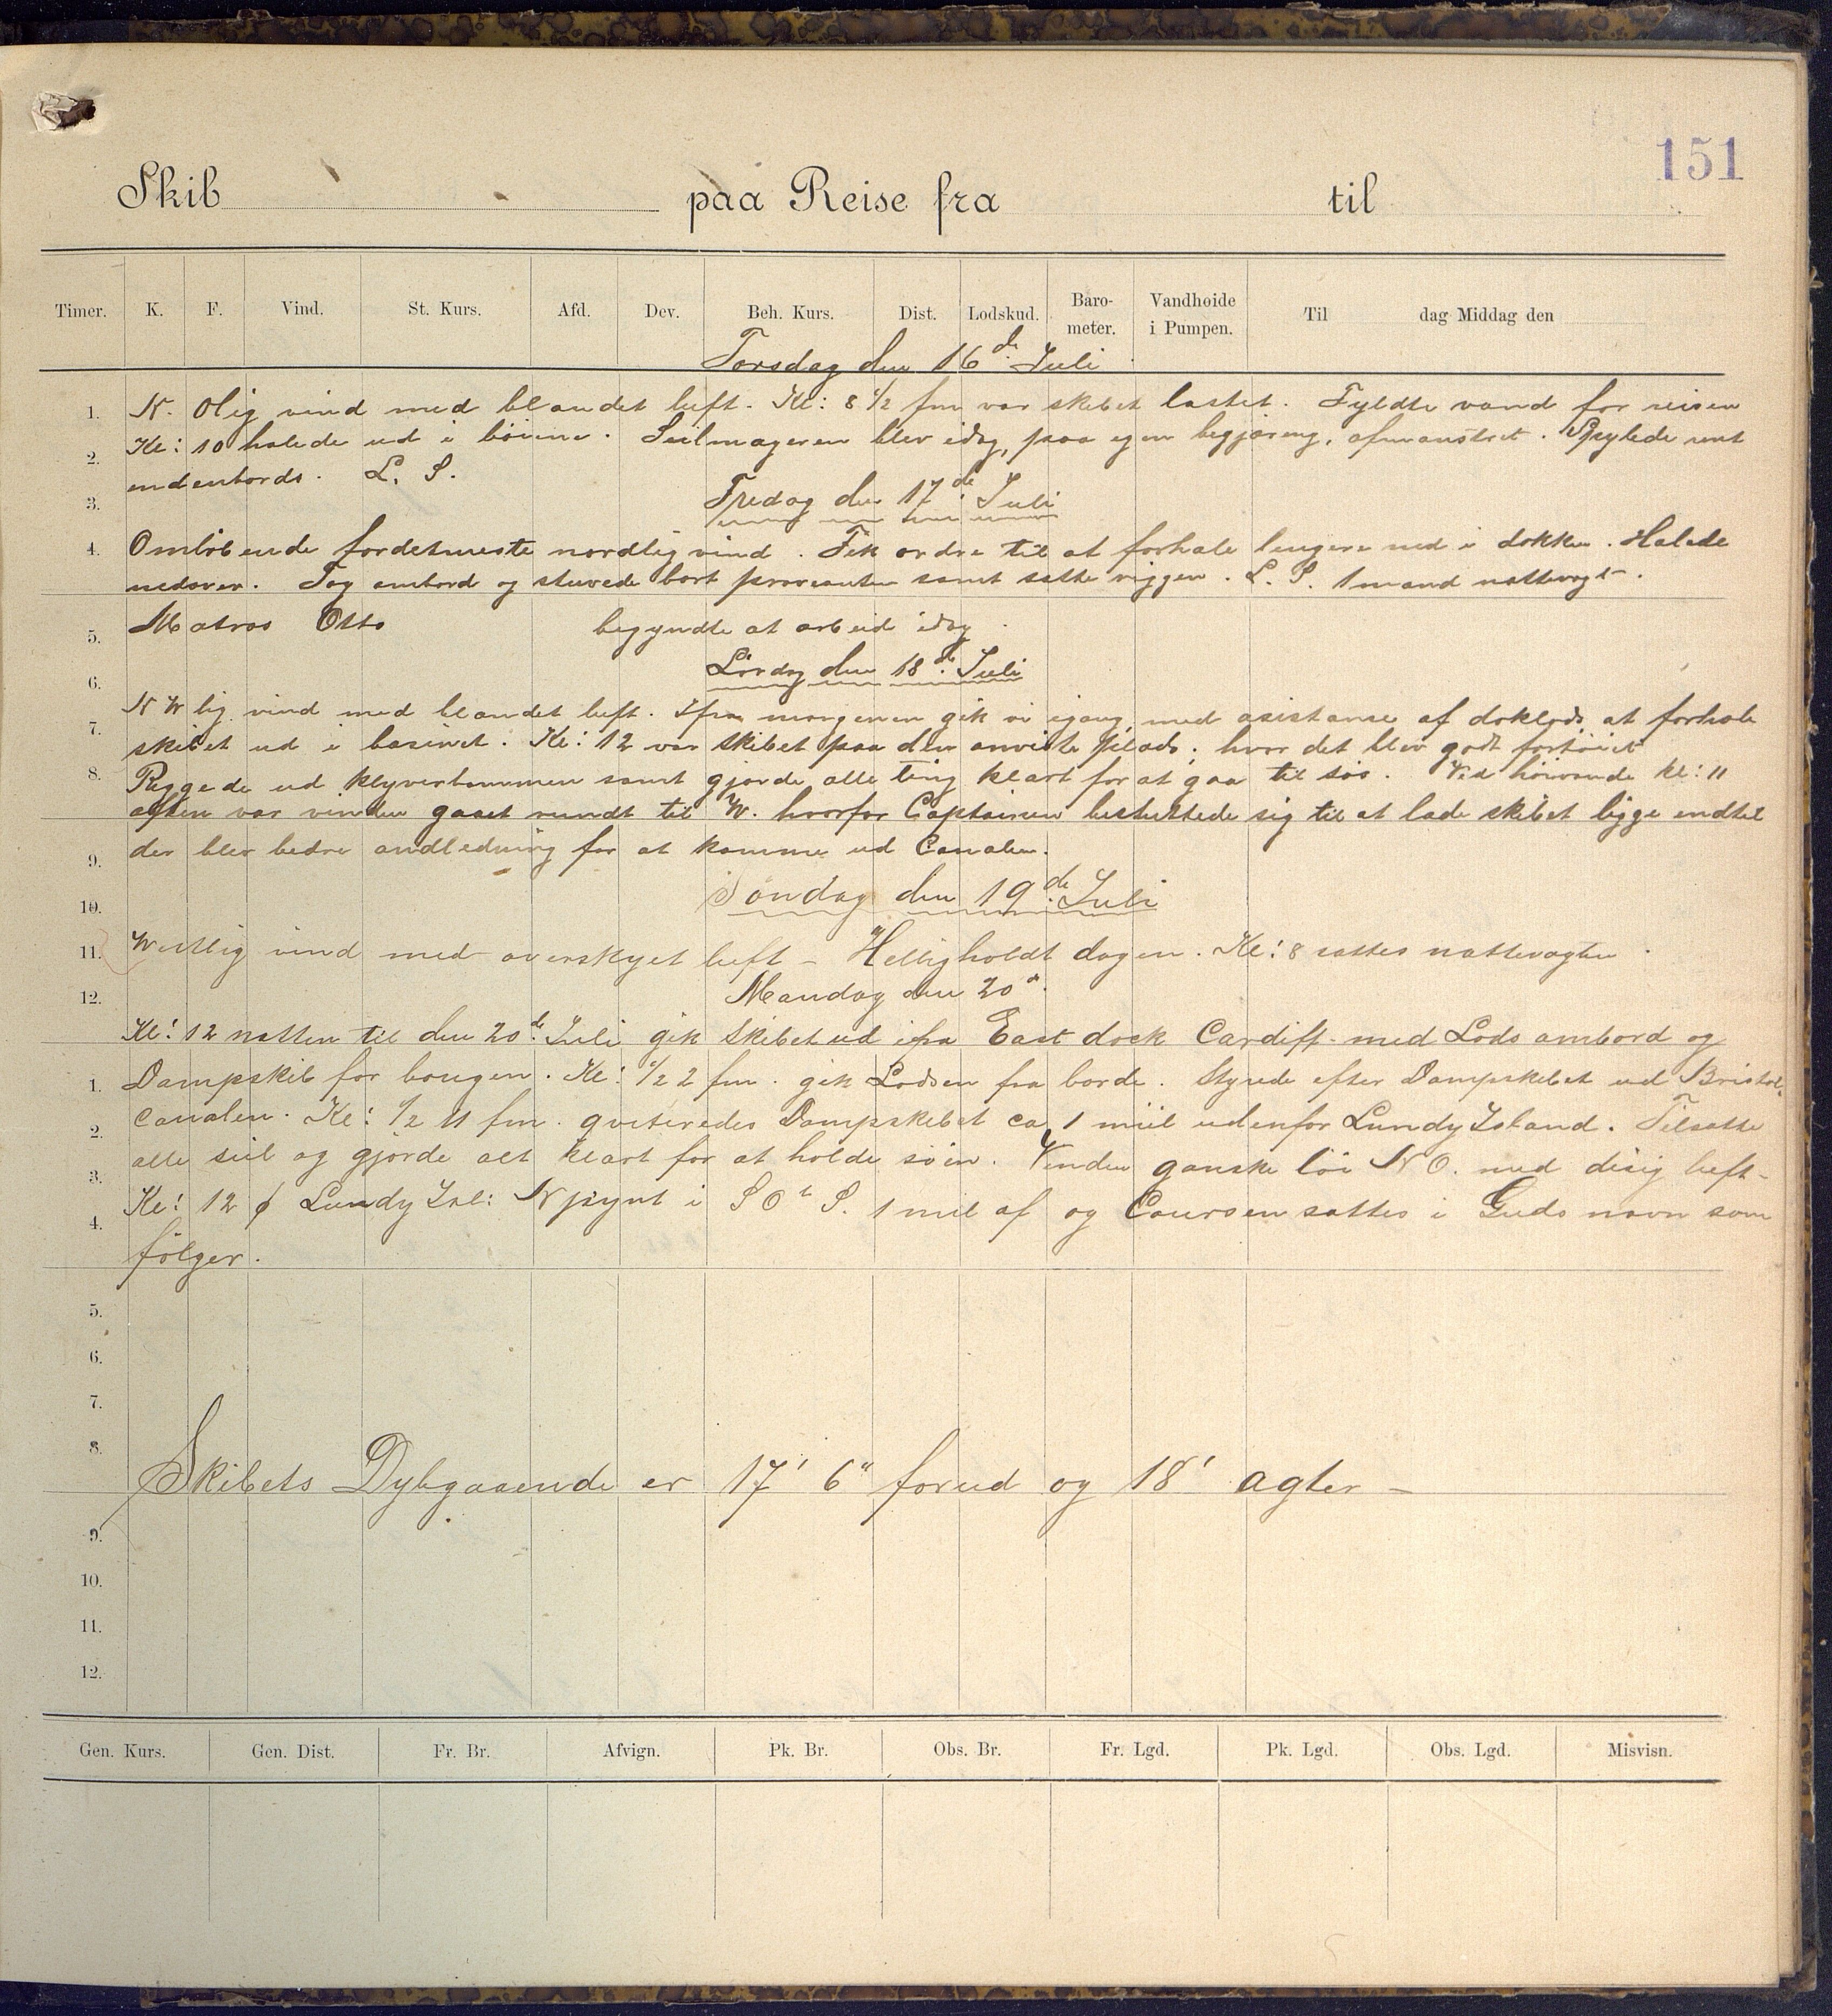 151
Skib paa Reise fra til
Timer. K. F. Vind. St. Kurs. Afd. Dev. Beh. Kurs. Dist. Lodskud. Baro-meter. Vandhøide i Pumpen. Til dag Middag den
Torsdag den 16de Juli
1. N. Olig vind med blandet luft. Kl: 8 1/2 fm var skibet lastet. Fyldte vand for reisen
2. Kl: 10 halede ud i böiene. Seilmageren blev idag, paa egen begjæring, afmønstret. Spylede rent
endenbords. L. S.
3. Fredag den 17de Juli
4. Omlöbende fordetmeste nordlig vind. Fik ordre til at forhale lengere ned i dokken. Halede
nedover. Tog ombord og stuvede bort provianten samt satte riggen. L. S. 1 mand nattevagt.
5. Matros Otto begyndte at arbeid idag.
6. Lördag den 18de Juli
7. N W lig vind med blandet luft. Ifra morgenen gik vi igang med asistanse af doklods at forhale
skibet ud i basinet. Kl: 12 var skibet paa den anviste plads, hvor det blev godt fortöiet
8. Riggede ud klyverbommen samt gjorde alle ting klart for at gaa til sös. Ved höivande kl: 11
aften var vinden gaaet rundt til W. hvorfor Captainen besluttede sig til at lade skibet ligge endtil
9. der blev bedre andledning for at komme ud Canalen.
10. Söndag den 19de Juli
11. Westlig vind med overskyet luft - Helligholdt dagen. Kl: 8 sattes nattevagten.
12. Mandag den 20d.
Kl: 12 natten til den 20de Juli gik Skibet ud ifra East dock Cardiff med Lods ombord og
1. Dampskib for bougen. Kl: 1/2 2 fm. gik Lodsen fra borde. Styrede efter Dampskibet ud Bristol
2. Canalen. Kl: 1/2 11 fm. qviteredes Dampskibet ca 1 miil udenfor Lundy Island. Tilsatte
3. alle seil og gjorde alt klart for at holde söen. Vinden ganske löi N O. med disig luft-
4. Kl: 12 Lundy Isl: N pynt i S O t S. 1 mil af og Coursen sattes i Guds navn som
fölger.
5.
6.
7.
8. Skibets Dybgaaende er 17' 6" forud og 18' agter -
9.
10.
11.
12.
Gen. Kurs. Gen. Dist. Fr. Br. Afvign. Pk. Br. Obs. Br. Fr. Lgd. Pk. Lgd. Obs. Lgd. Misvisn.